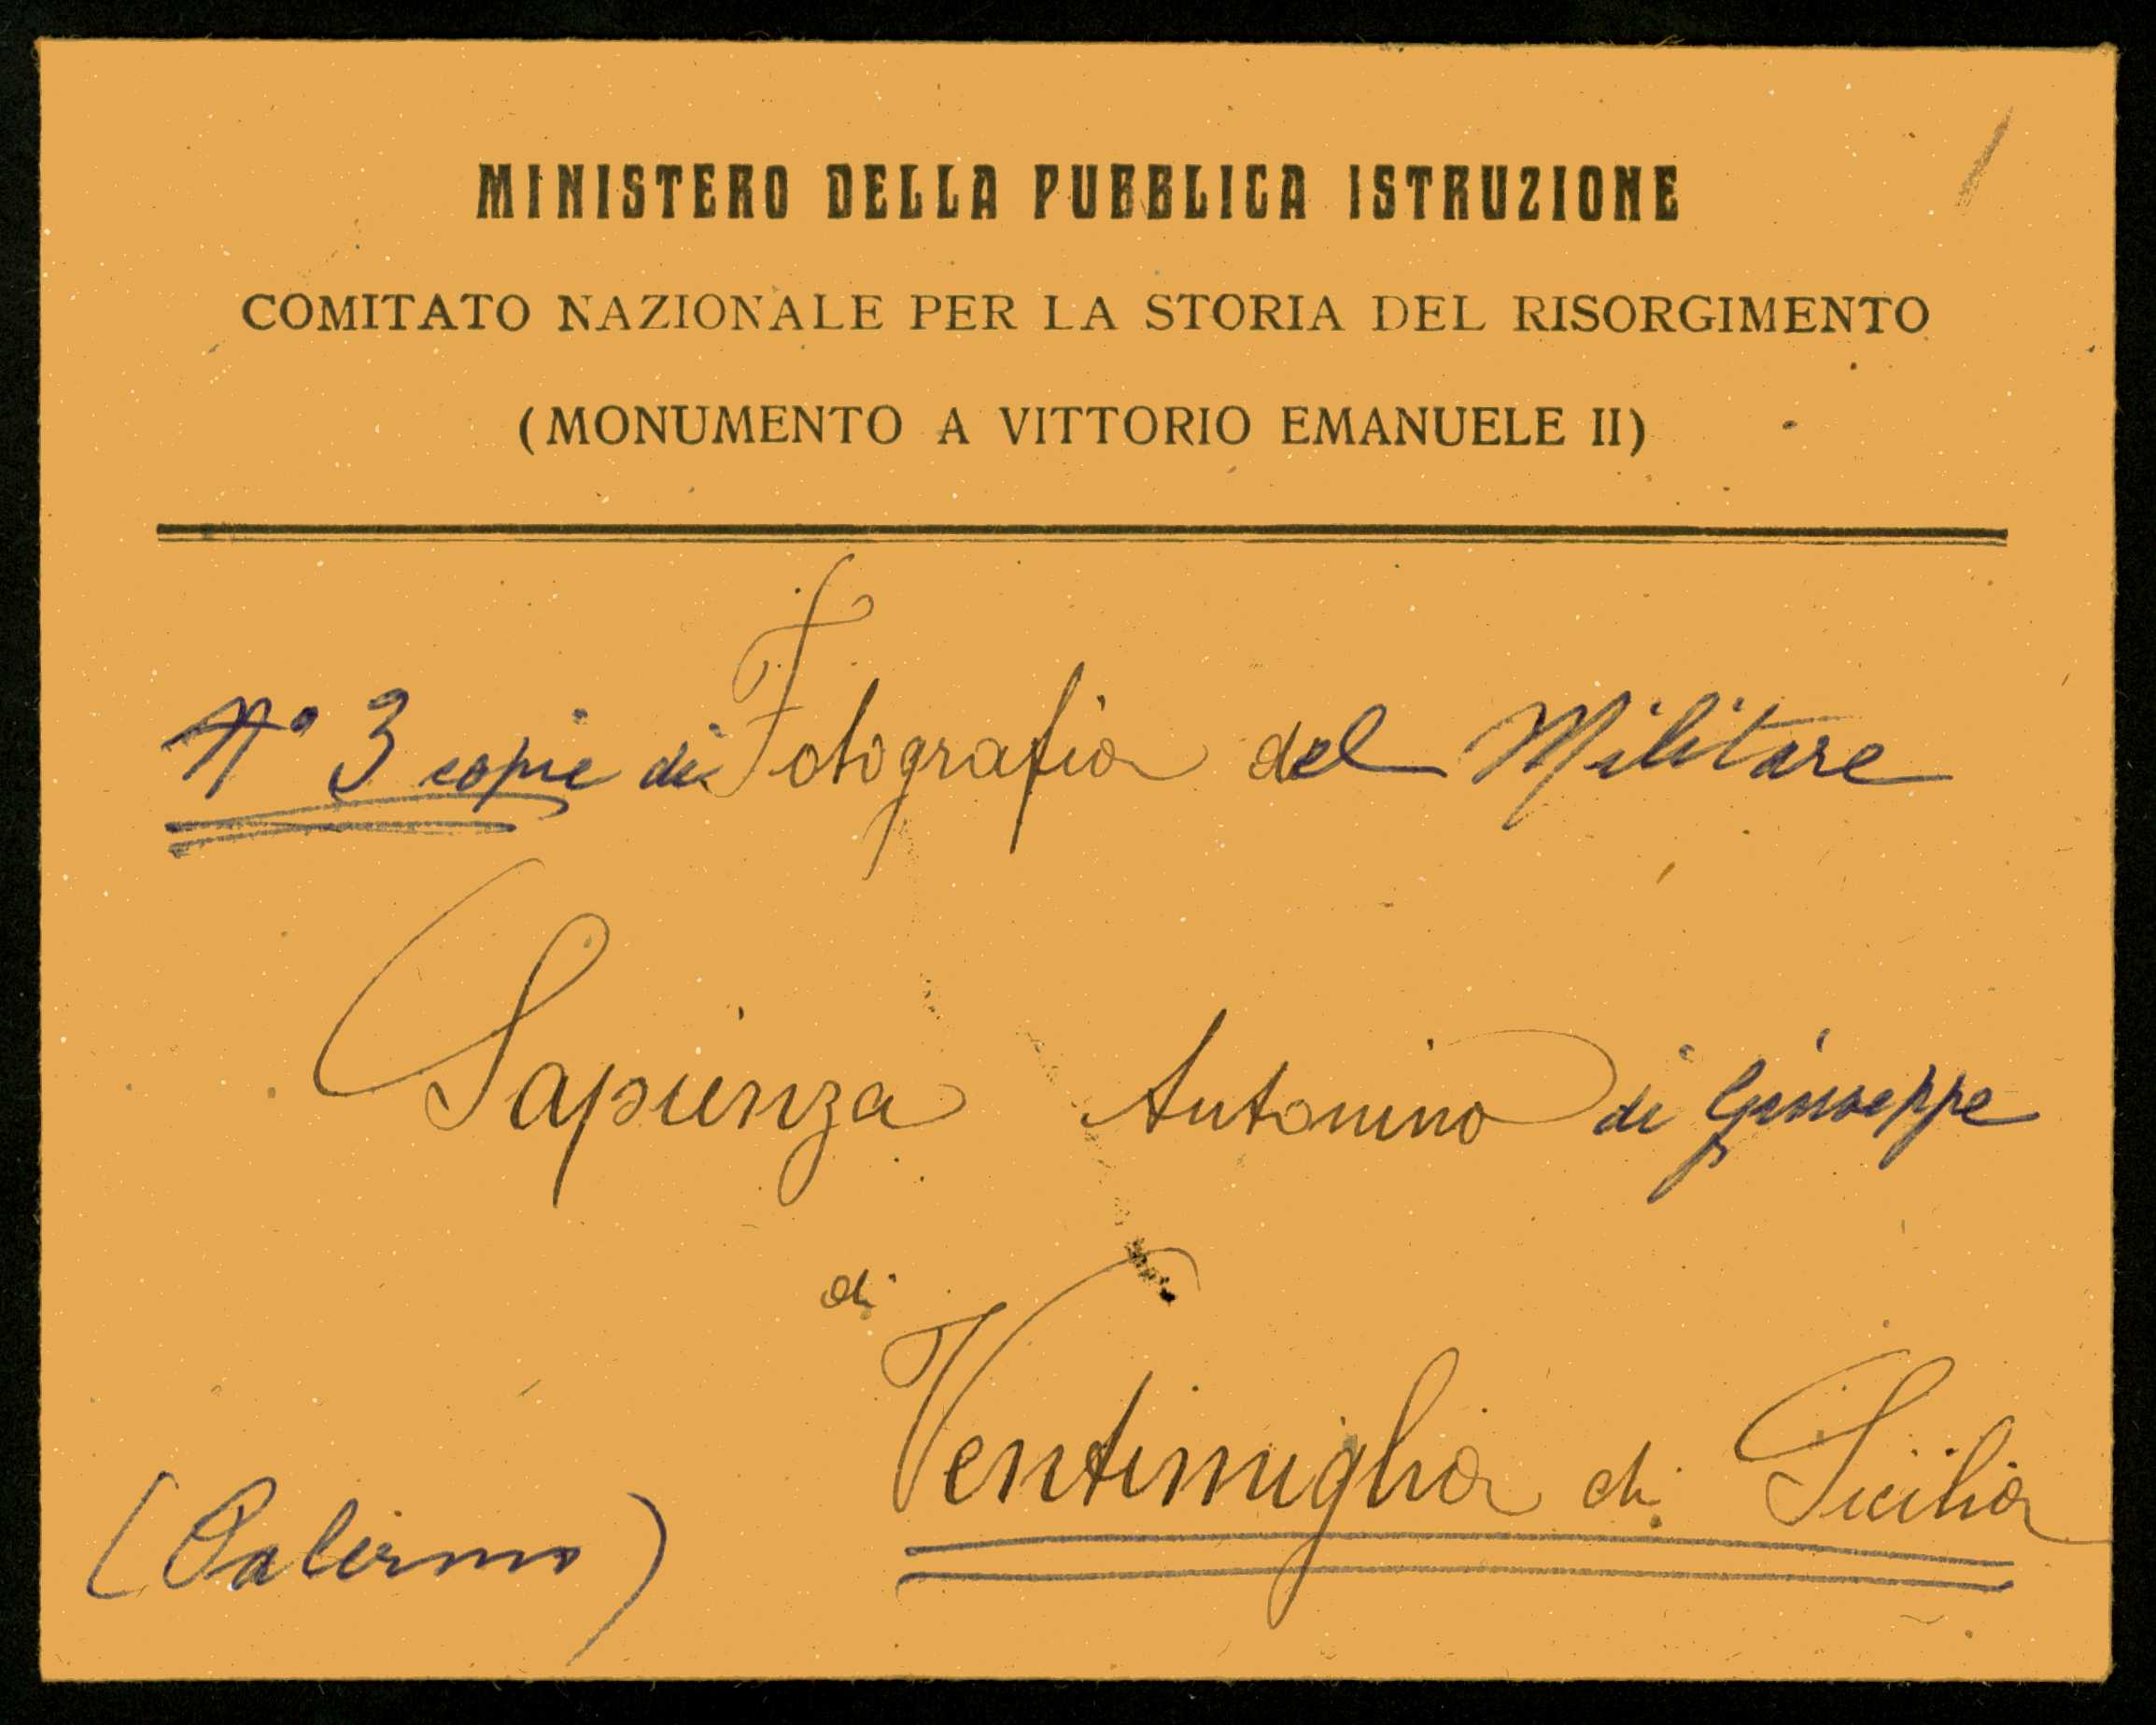 MINISTERO DELLA PUBBLICA ISTRUZIONE
COMITATO NAZIONALE PER LA STORIA DEL RISORGIMENTO
(MONUMENTO A VITTORIO EMANUELE II)
N° 3 copie di Fotografia del Militare
Sapienza Antonino di Giuseppe
di
Ventimiglia di Sicilia
(Palermo)